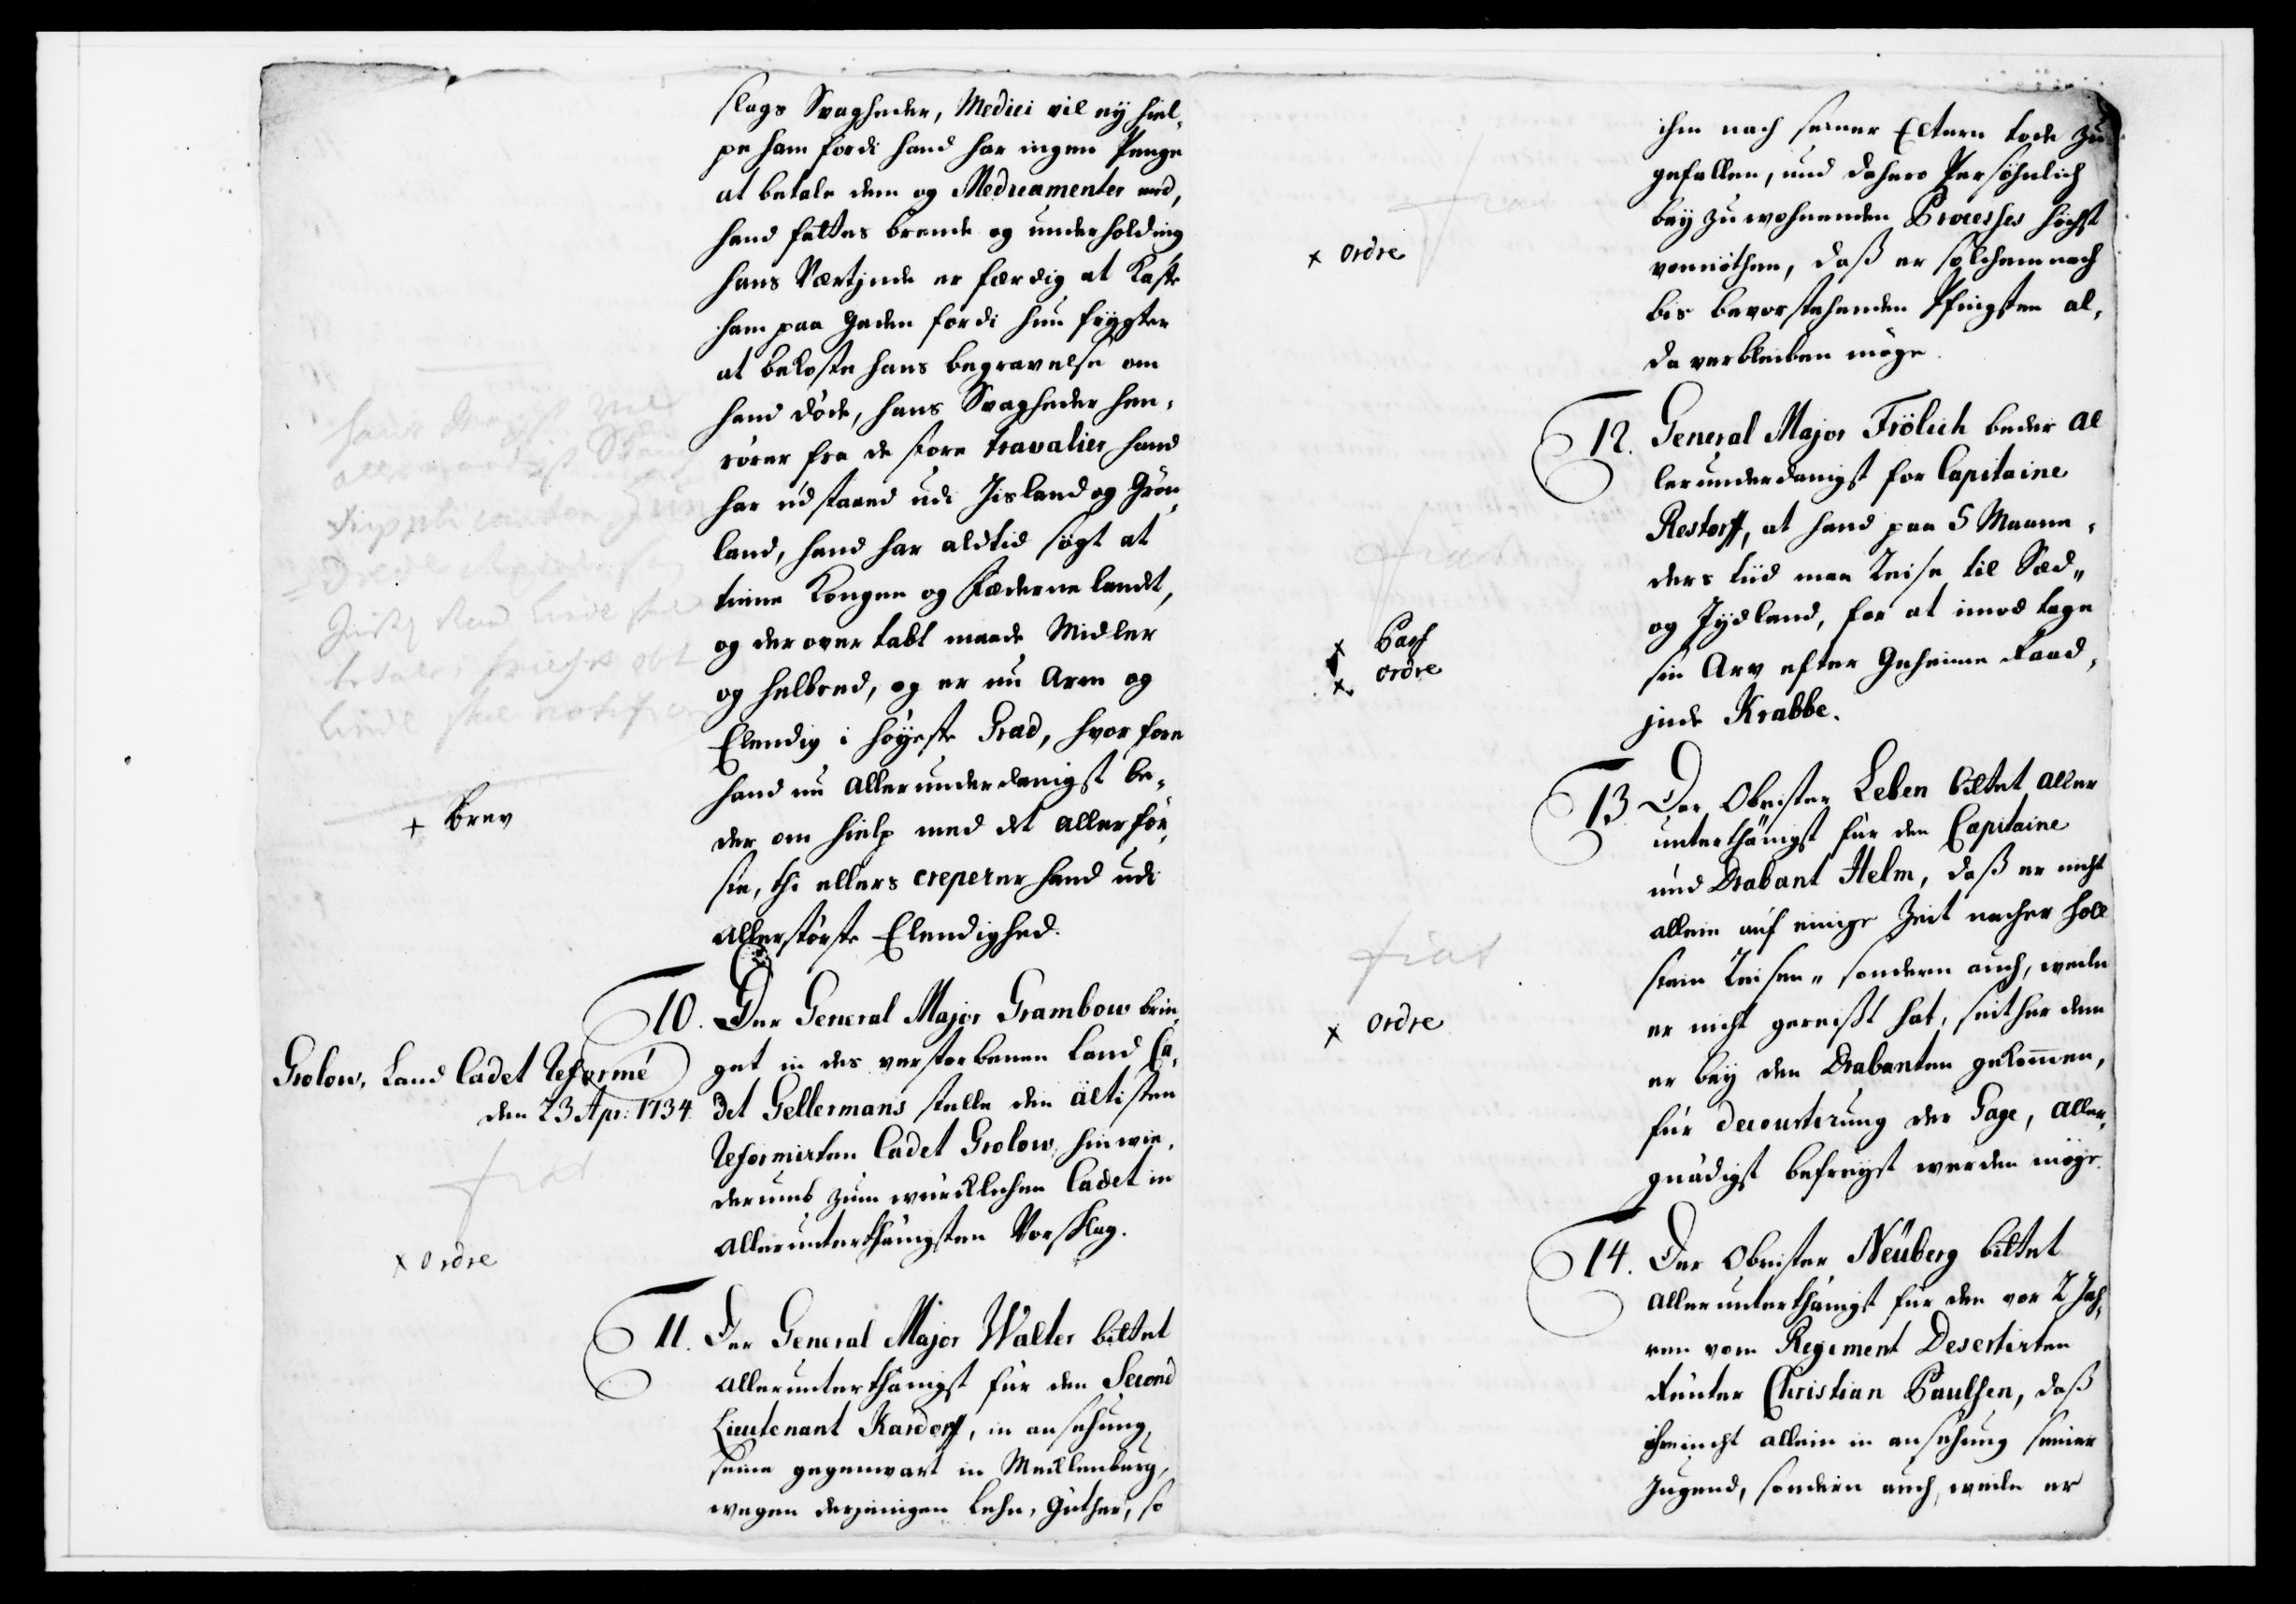 slags Svagheder, Medici vil ey hiel-
pe ham fordi hand har ingen Penge
at betale dem og Medicamenter med,
hand fattes brende og underholding
hans Værtinde er færdig at Kaste
ham paa Gaden fordi hun frygter
at bekoste hans begravelse om
hand døde, hans Svagheder her-
rører fra de store travalier hand
har udstaaed udi Jisland og Grøn
land, hand har altid søgt at
tiene Kongen og Fæderne landet,
og der over tabt maade Midler
og helbred, og er nu Arm og
Elendig i høyeste Grad, hvorfore
hand nu allerunderdanigst be-
der om hielp med det allerför-
ste, thi ellers creperer hand udi
allerstørste Elendighed.
+ Brev
10. Der General Major Grambow brin-
get in des verstorbenen Land Ca-
det Gellermans stelle den ältisten
Reformirten Cadet Grolow, hinwie-
derumb zum würcklichen Cadet in
allerunterthänigsten Vorschlag.
Grolow, Land Cadet Reformé
den 23 Apr: 1734
fiat
x ordre
11. Der General Major Walter bittet
allerunterthänigst für den Second
Lieutenant Kardorff, in ansehung,
seine gegenwart in Mecklenburg,
wegen derjenigen Lehn-Güther, so
ihm nach seiner Eltern tode zu
gefallen, und dahero Persöhnlich
bey zu wohnenden Processes höchst
vonnöthen, daß er solchemnach
bis bevorstehenden Pfingsten al-
da verbleiben möge.
fiat
x ordre
12. General Major Frölich beder al
lerunderdanigst for Capitaine
Restorff, at hand paa 5 Maane-
ders tiid maa Reise til Sæd-
og Jydland, for at imod tage
sin Arv efter Geheime Raad-
inde Krabbe.
fiat
x Pass
x ordre
13. Der Obrister Leben bittet aller
unterthänigst für den Capitaine
und Drabant Helm, daß er nicht
allein auf einige Zeit nacher Holl
stein Reisen, sondern auch, weile
er nicht gereist hat, seither dem
er bey den Drabanten gekommen,
für decourtirung der Gage, aller-
gnädigst befreyet werden möge.
fiat
x ordre
14. Der Obrister Neüberg bittet
allerunterthänigst für den vor 2 Jah-
ren vom Regiment Desertirten
Reuter Christian Paulsen, daß
ihm nicht allein in ansehung seiner
Jugend, sondern auch, weile er